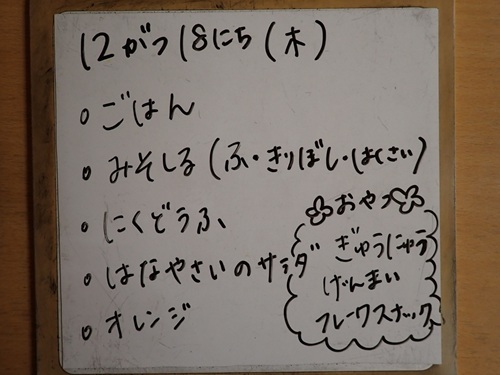 12がつ18にち(木)
ごはん
みそしる(ふ・きりぼし・はくさい)
にくどうふ
はなやさいのサラダ
オレンジ
おやつ
ぎゅうにゅう
げんまい
フレークスナック